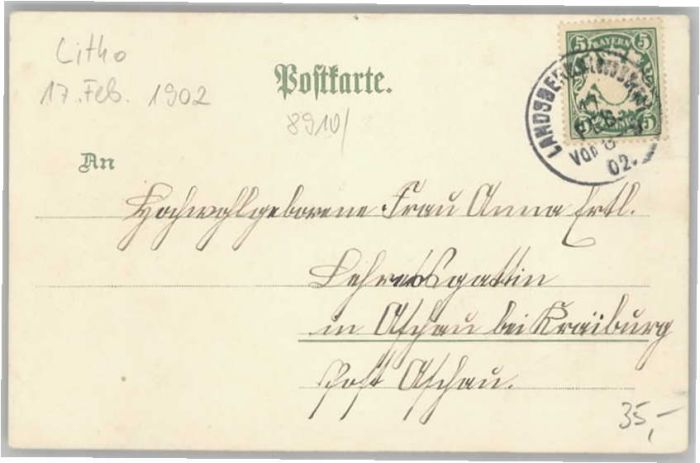 Litho
17. Feb. 1902
Postkarte.
8910/
BAYERN
5 5
5 5
LANDSBERG
17
FEB.
VOR
02.
An
Hochwohlgeborene Frau Anna Ertl.
Lehrersgattin
in Aschau bei Kraiburg
Post Aschau.
35,-